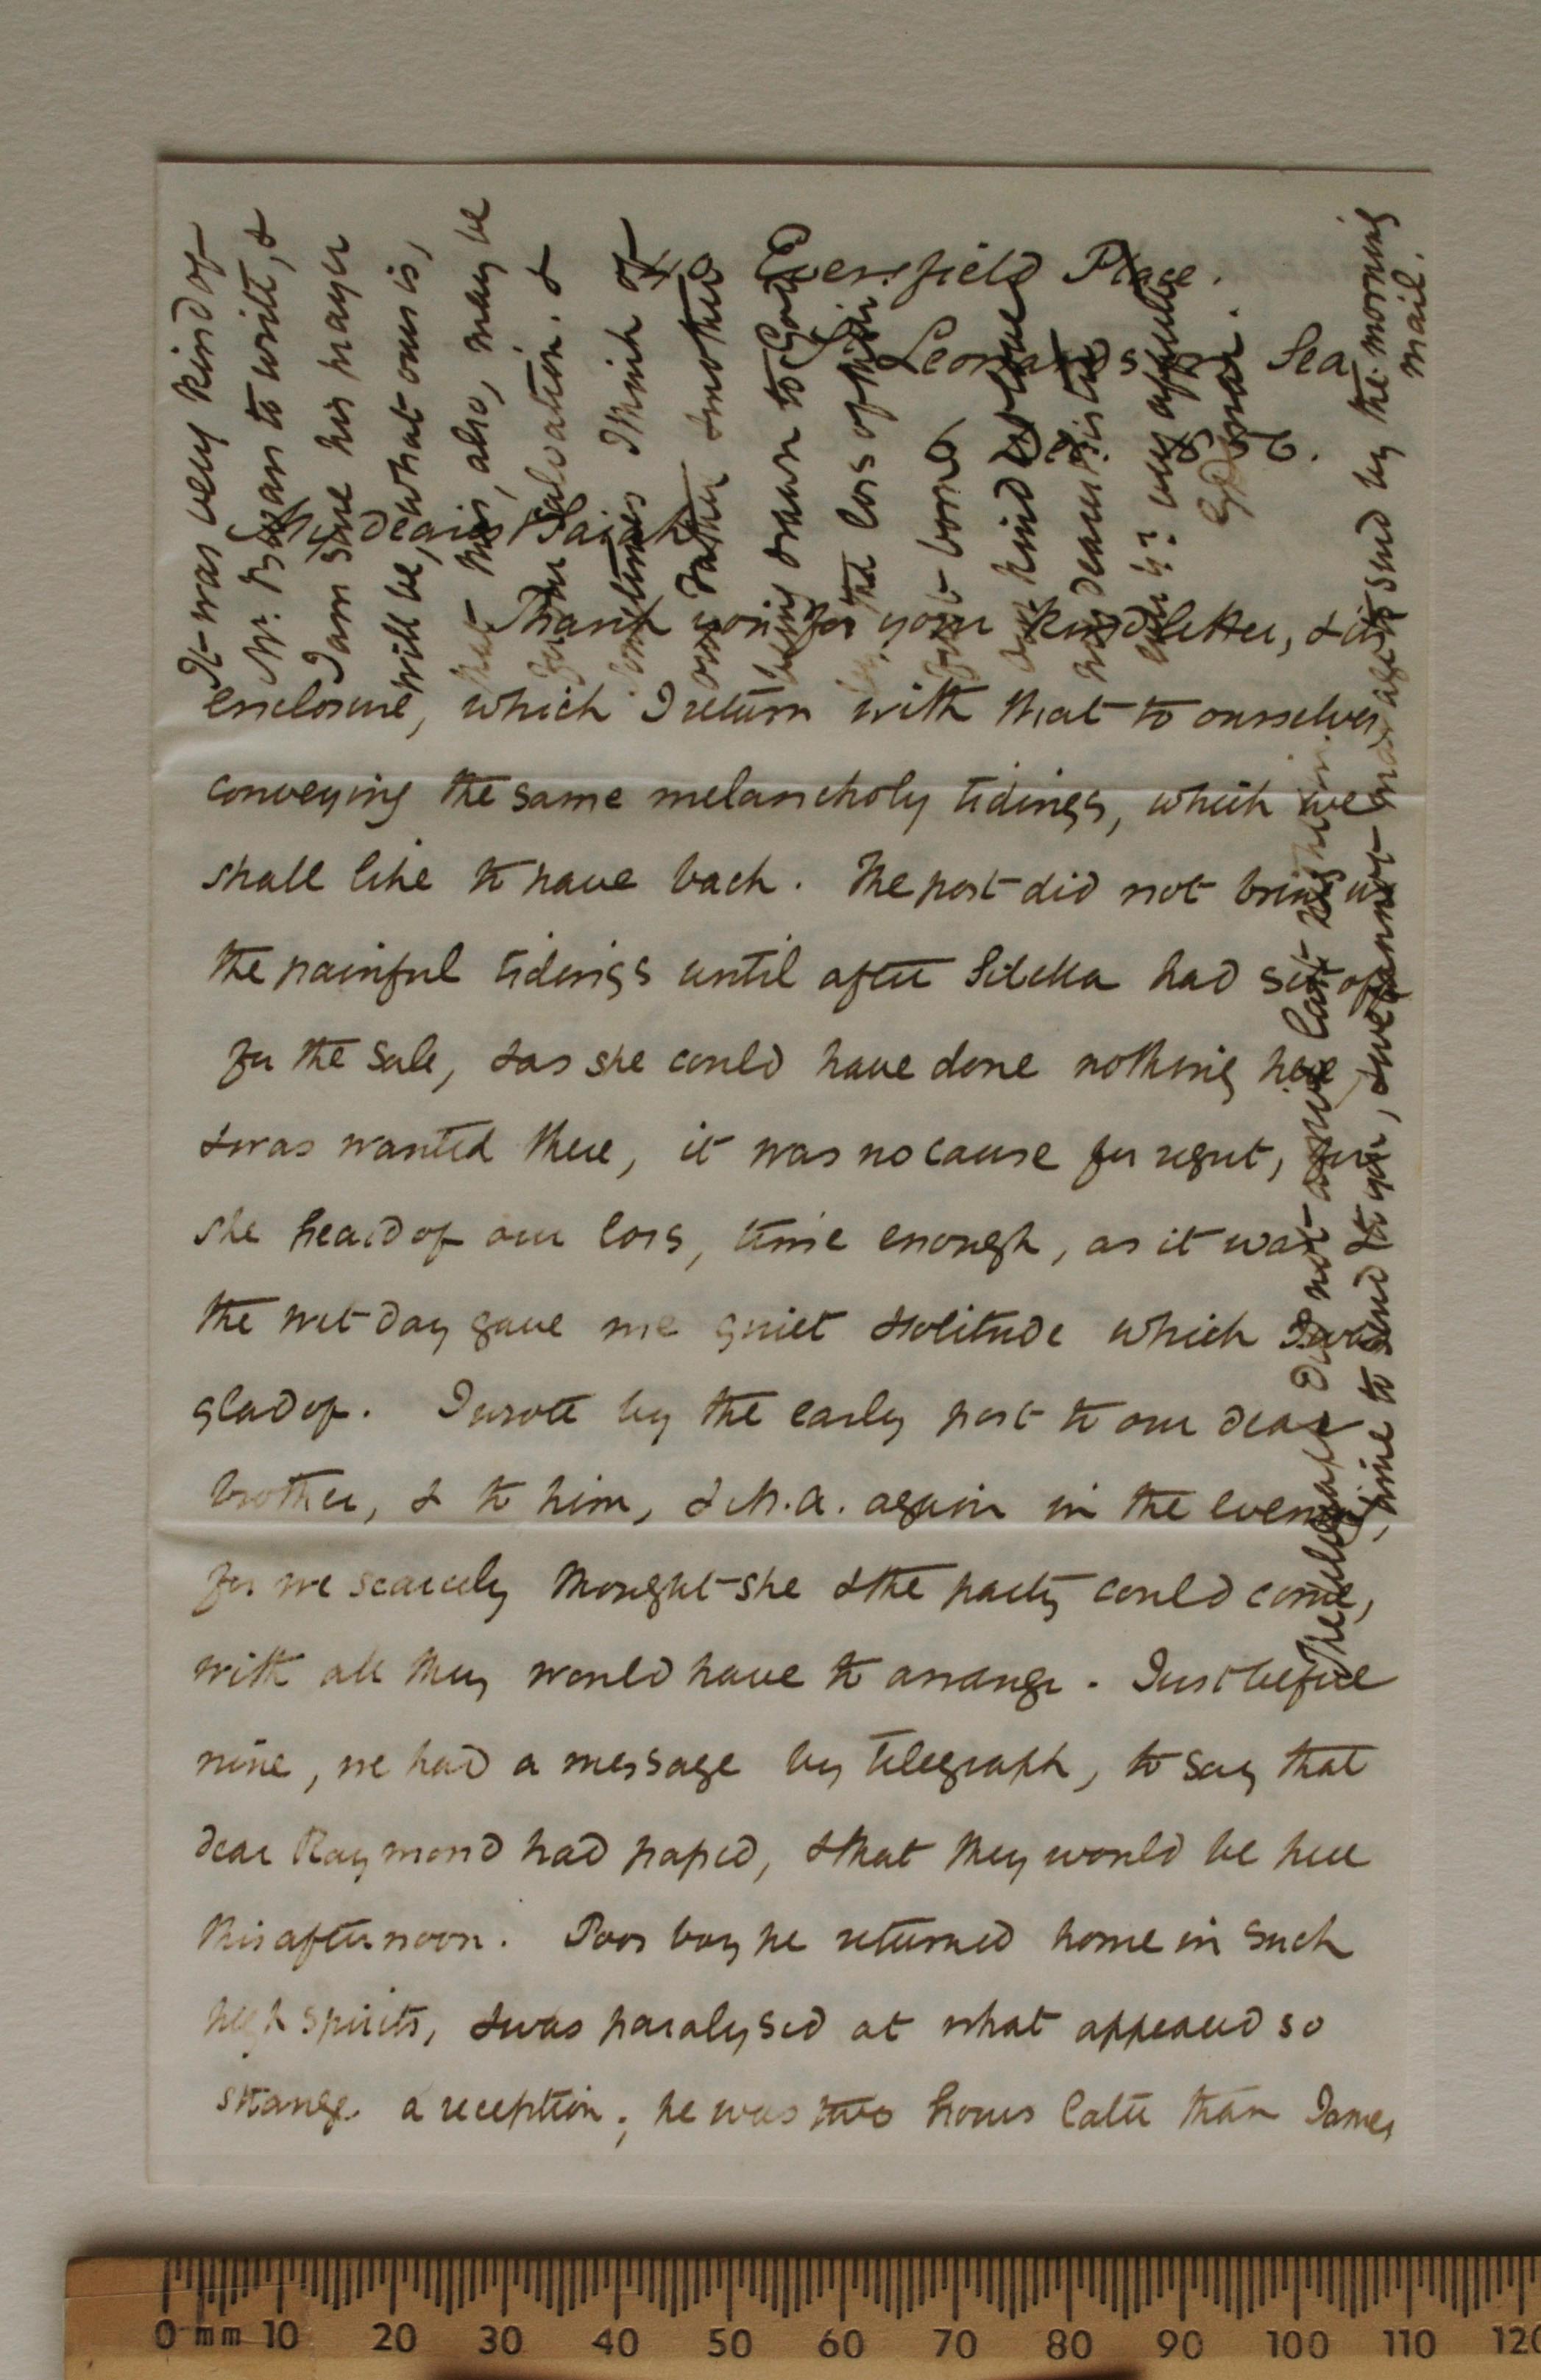 Eversfield Place.
St Leonards on Sea
Oct.
My dearest Sarah
Thank you for your kind letter, & its
enclosure, which I return with that to ourselves,
conveying the same melancholy tidings, which we
shall like to have back. The post did not bring us
the painful tidings until after Sibella had set off
for the Sale, & as she could have done nothing here
& was wanted there, it was no cause for regret, for
she heard of our loss, time enough, as it was
the wet day gave me quiet & solitude which I was
glad of. I wrote by the early post to our dear
brother, & to him, & M.A. again in the evening,
for we scarcely thought she & the party could come,
with all they would have to arrange. Just before
nine, we had a message by telegraph, to say that
dear Raymond had passed, & that they would be here
this afternoon. Poor boy he returned home in such
high spirits, & was paralysed at what appeared so
strange a reception; he was two hours later than James
It was very kind of
Mr. to write, &
I am sure his prayer
will be, what ours is,
that this, also, may be
for salvation. &
sometimes I think of
our Father & mother
being drawn to God
by the loss of their
first born
our kind love
my dearest sister
your affecte
The telegraph did not arrive last night in
time to send to you, & we cannot send by the morning
mail.
0 mm 10 20 30 40 50 60 70 80 90 100 110 120